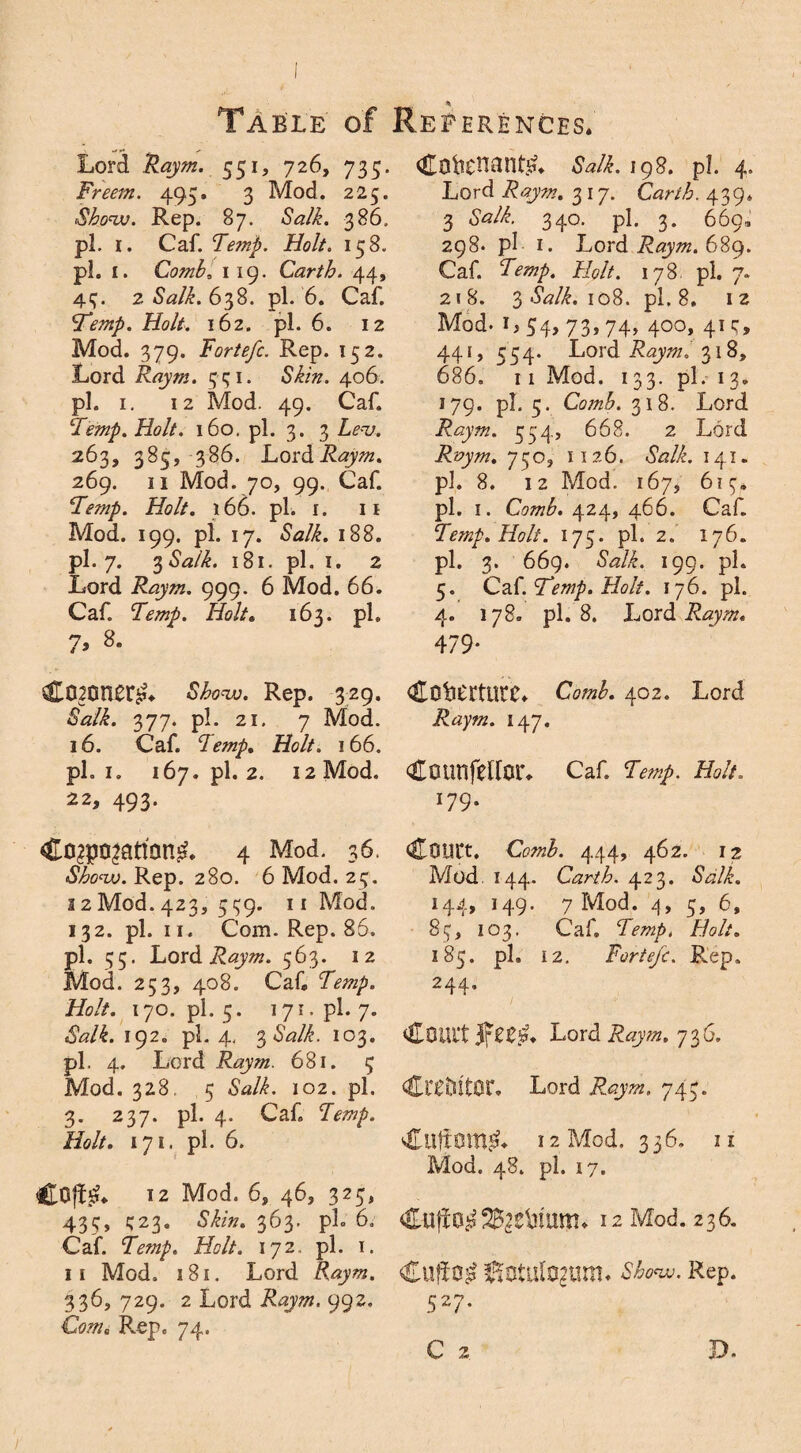 TABLE of REFERENCES.
Lord Raym. 551, 726, 735.
Freem. 495. 3 Mod. 225.
Show. Rep. 87. Salk. 386.
pl. 1. Caſ. Temp. Holt. 158.
pl. 1. Comb. 119. Carth. 44,
45. 2 Salk. 638. pl. 6. Caſ.
Temp. Holt. 162. pl. 6. 12
Mod. 379. Forteſc. Rep. 152.
Lord Raym. 551. Skin. 406.
pl. 1. 12 Mod. 49. Caſ.
Temp. Holt. 160. pl. 3. 3 Lev.
263, 385, 386. Lord Raym.
269. 11 Mod. 70, 99. Caſ.
Temp. Holt. 166. pl. 1. 11
Mod. 199. pl. 17. Salk. 188.
pl. 7. 3 Salk. 181. pl. 1. 2
Lord Raym. 999. 6 Mod. 66.
Caſ. Temp. Holt. 163. pl.
7, 8.
Coꝛoners. Show. Rep. 329.
Salk. 377. pl. 21. 7 Mod.
16. Caſ. Temp. Holt. 166.
pl. 1. 167. pl. 2. 12 Mod.
22, 493.
Coꝛpoꝛations. 4 Mod. 36.
Show. Rep. 280. 6 Mod. 25.
12 Mod. 423, 559. 11 Mod.
132. pl. 11. Com. Rep. 86.
pl. 55. Lord Raym. 563. 12
Mod. 253, 408. Caſ. Temp.
Holt. 170. pl. 5. 171. pl. 7.
Salk. 192. pl. 4. 3 Salk. 103.
pl. 4. Lord Raym. 681. 5
Mod. 328. 5 Salk. 102. pl.
3. 237. pl. 4. Caſ. Temp.
Holt. 171. pl. 6.
Coſts. 12 Mod. 6, 46, 325,
435, 523. Skin. 363. pl. 6.
Caſ. Temp. Holt. 172. pl. 1.
11 Mod. 181. Lord Raym.
336, 729. 2 Lord Raym. 992.
Com. Rep. 74.
Covenants. Salk. 198. pl. 4.
Lord Raym. 317. Carth. 439.
3 Salk. 340. pl. 3. 669.
298. pl 1. Lord Raym. 689.
Caſ. Temp. Holt. 178. pl. 7.
218. 3 Salk. 108. pl. 8. 12
Mod. 1, 54, 73, 74, 400, 415,
441, 554. Lord Raym. 318,
686. 11 Mod. 133. pl. 13.
179. pl. 5. Comb. 318. Lord
Raym. 554, 668. 2 Lord
Raym. 750, 1126. Salk. 141.
pl. 8. 12 Mod. 167, 615.
pl. 1. Comb. 424, 466. Caſ.
Temp. Holt. 175. pl. 2. 176.
pl. 3. 669. Salk. 199. pl.
5. Caſ. Temp. Holt. 176. pl.
4. 178. pl. 8. Lord Raym.
479.
Coverture. Comb. 402. Lord
Raym. 147.
Counſellor. Caſ. Temp. Holt.
179.
Court. Comb. 444, 462. 12
Mod. 144. Carth. 423. Salk.
144, 149. 7 Mod. 4, 5, 6,
85, 103. Caſ. Temp. Holt.
185. pl. 12. Forteſc. Rep.
244.
Court Fees. Lord Raym. 736.
Creditor. Lord Raym. 745.
Cuſtoms. 12 Mod. 336. 11
Mod. 48. pl. 17.
Cuſtos Bꝛevium. 12 Mod. 236.
Cuſtos Rotuloꝛum. Show. Rep.
527.
C 2 D.